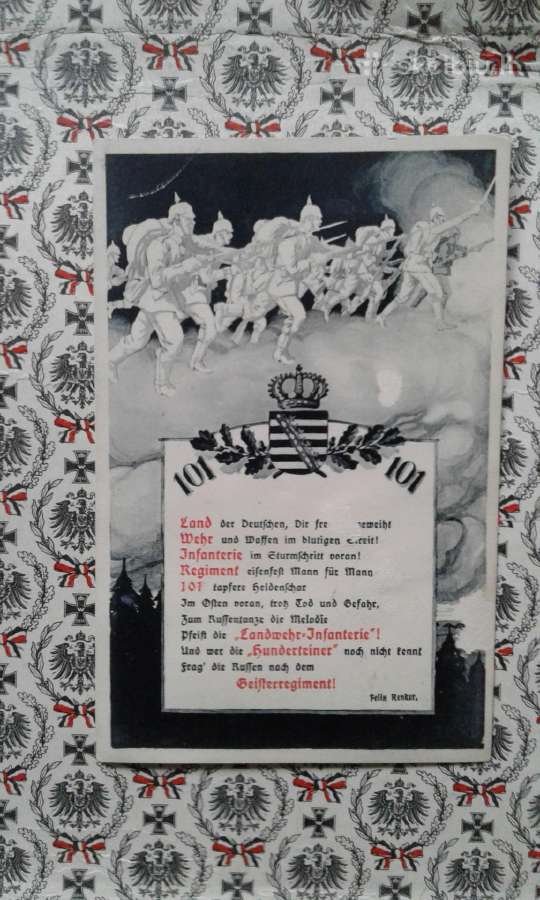 101 101
Land der Deutschen, Dir geweiht
Wehr und Waffen im blutigen Streit!
Infanterie im Sturmschritt voran!
Regiment eisenfest Mann für Mann
101 tapfere Heldenschar
Im Osten voran, trotz Tod und Gefahr,
Zum Russentanze die Melodie
Pfeift die „Landwehr-Infanterie"!
Und wer die „Hunderteiner" noch nicht kennt
Frag' die Russen nach dem
Geisterregiment!
Felix Renker.